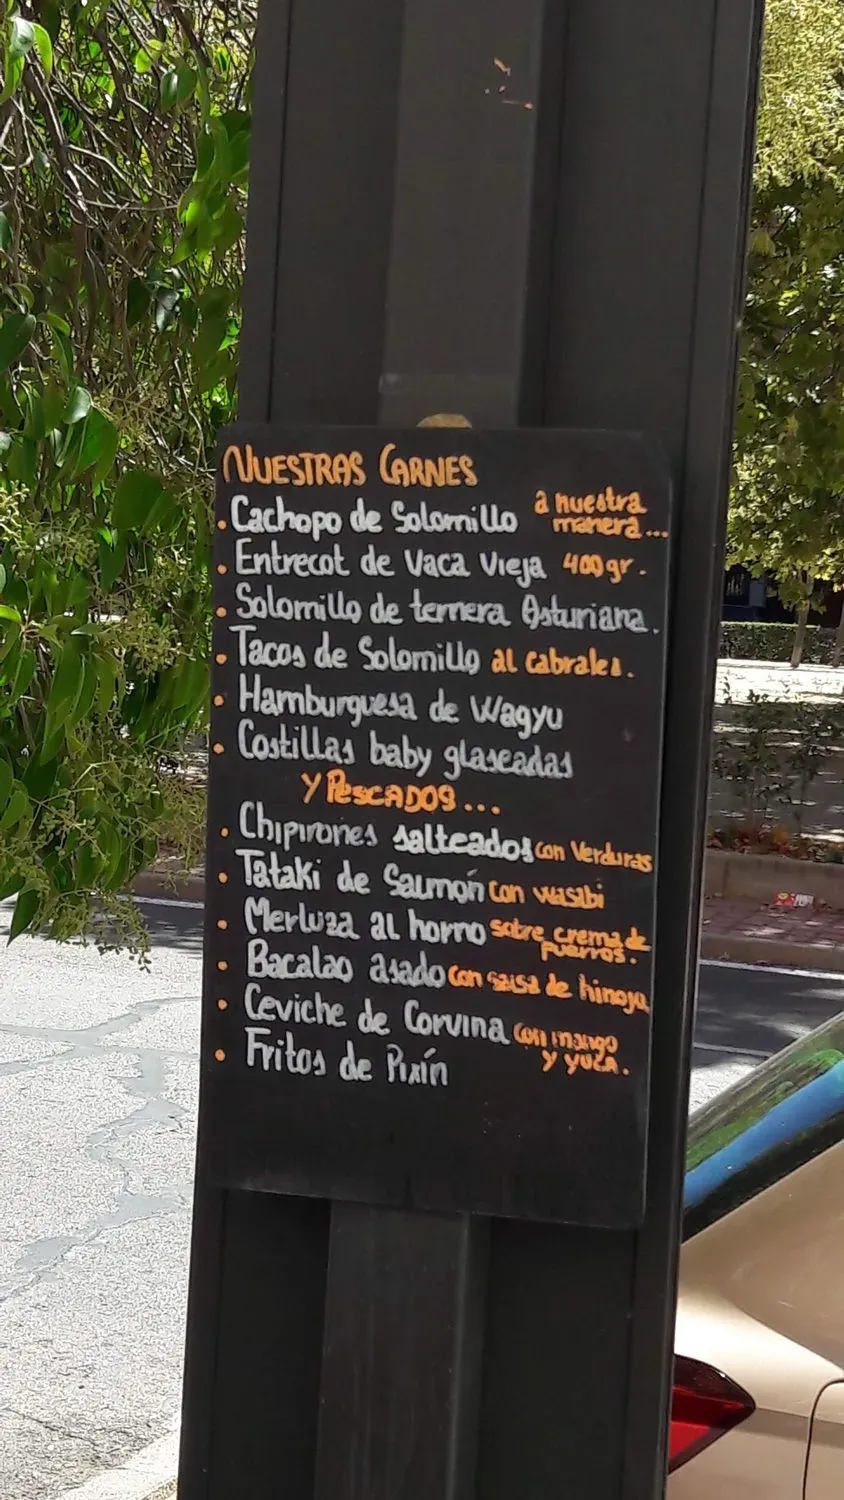 NUESTRAS CARNES
. Cachopo de Solomillo a nuestra manera...
. Entrecot de Vaca Vieja 400gr.
. Solomillo de ternera Asturiana.
. Tacos de Solomillo al cabrales.
. Hamburguesa de Wagyu
. Costillas baby glaseadas
Y PESCADOS...
. Chipirones salteados con Verduras
. Tataki de Salmón con wasibi
. Merluza al horno sobre crema de puerros.
. Bacalao asado con salsa de hinojo
. Ceviche de Corvina con mango y yuca.
. Fritos de Pixín